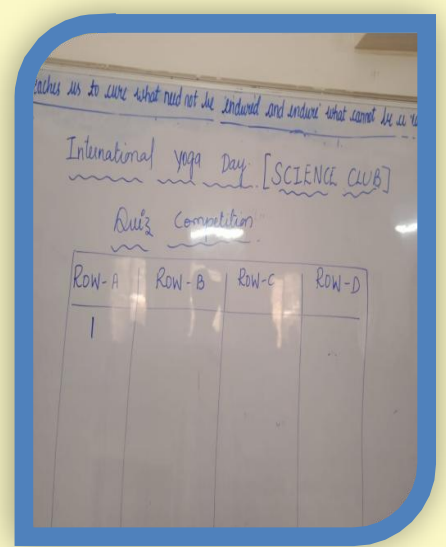 eaches us to cure what need not be endured and endure' what cannot be
International yoga Day. [SCIENCE CLUB]
Quiz Competition.
ROW-A ROW-B ROW-C ROW-D
1